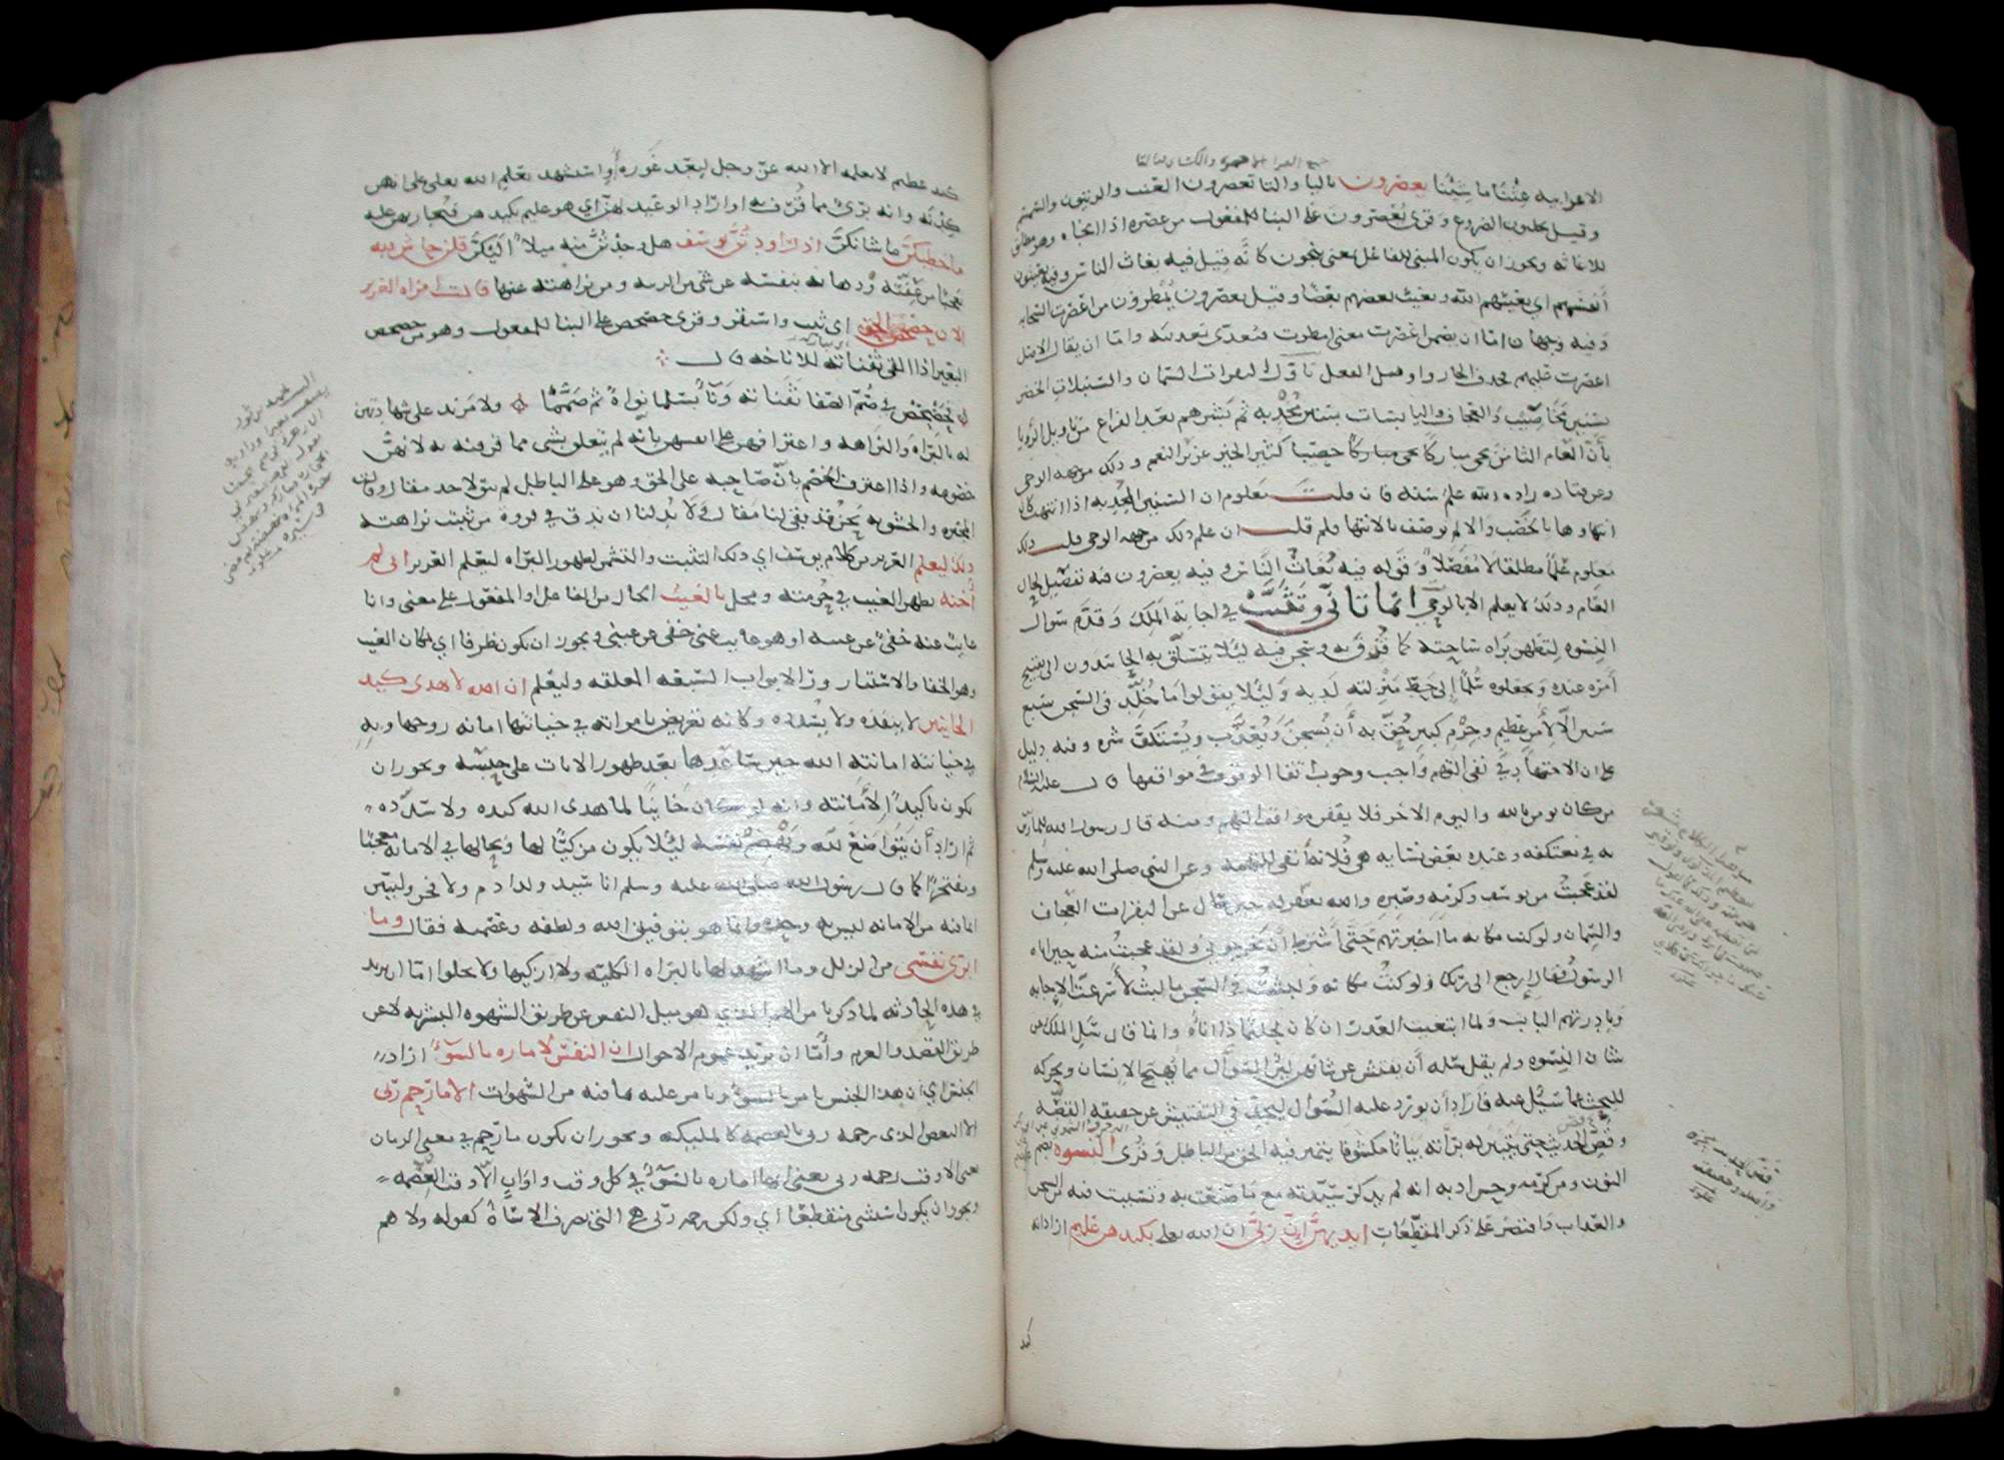 الاعرابيه غثنا ما شئنا يعصرون باليا والتا تعصرون العنب والزيتون والسمسم
وقيل يحلبون الضروع وقرئ يُعصَرون على البنا للمفعول من عصره اذا انجاه وهو مطابق
للاغاثه ويجوز ان يكون المبنى للفاعل بمعنى ينجون كانه قيل فيه يغاث الناس وفيه يغيثون
أنفسهم اي يغيثهم الله ويغيث بعضهم بعضا وقيل يعصرون يُمطرون من اعصرت السحابه
وفيه وجهان اما ان يضمن اعصرت معنى امطرت فيعدى تعديته واما ان يقال الاصل
اعصرت عليهم فحذف الجار واوصل الفعل تاول البقرات السمان والسنبلات الخضر
بسنين مخاصيب والعجاف واليابسات بسنين مجدبه ثم بشرهم بعد الفراغ من تاويل الرويا
بأن العام الثامن يجي مباركا خصيبا كثير الخير عزيز النعم وذلك من جهه الوحي
وعن قتاده زاده الله علم سنه فان قلت معلوم ان السنين المجدبه اذا انتهت كان
انتهاوها بالخصب والا لم توصف بالانتها فلم قلت ان علم ذلك من جهه الوحي قلت ذلك
معلوم علما مطلقا لا مفصلا وقوله فيه يغاث الناس وفيه يعصرون فيه تفصيل لحال
العام وذلك لا يعلم الا بالوحي انما تأنى وتثبت في اجابه الملك وقدم سؤال
النسوه لتظهر براه ساحته عما قرف به وسجن فيه ليلا يتسلق به الحاسدون الى تقبيح
أمره عنده ويجعلوه سلما إلى حط منزلته لديه وليلا يقولوا ما خلد في السجن سبع
سنين الا لأمر عظيم وجرم كبير حق به أن يسجن ويعذب ويستكف شره وفيه دليل
على ان الاجتهاد في نفي التهم واجب وجوب اتقا الوقوف في مواقفها قال عليه السلام
من كان يومن بالله واليوم الاخر فلا يقفن مواقف التهم ومنه قال رسول الله للمارين
به في معتكفه وعنده بعض نسايه هي فلانه اتقى للتهمه وعن النبي صلى الله عليه وسلم
لقد عجبت من يوسف وكرمه وصبره والله يغفر له حين سئل عن البقرات العجاف
والسمان ولو كنت مكانه ما اخبرتهم حتى أشترط أن يخرجوني ولقد عجبت منه حين اتاه
الرسول فقال ارجع الى ربك ولو كنت مكانه ولبثت في السجن ما لبث لأسرعت الاجابه
وبادرتهم الباب ولما ابتغيت العذر ان كان لحليما ذا اناه وانما قال سل الملك عن
شان النسوه ولم يقل سله أن يفتش عن شانهن لان السؤال مما يهيج الانسان ويحركه
للبحث عما سئل عنه فأراد أن يورد عليه السوال ليجد في التفتيش عن حقيقه القصه
وفص الحديث حتى يتبين له براته بيانا مكشوفا يتميز فيه الحق من الباطل وقرئ النسوه بضم
النون ومن كرمه وحسن ادبه انه لم يذكر سيدته مع ما صنعت به وتسببت فيه من السجن
والعذاب واقتصر على ذكر المقطعات ايديهن ان ربي ان الله تعلى بكيدهن عليم اراد انه
كيد
كيد عظيم لا يعلمه الا الله عز وجل لبعد غوره أو استشهد بعلم الله تعلى على انهن
كدنه وانه برئ مما قرف به او اراد الوعيد لهن اي هو عليم بكيدهن فمجازيهن عليه
ما خطبكن ما شانكن اذ راودتن يوسف هل وجدتن منه ميلا اليكن قلن حاش لله
تعجبا من عفته وذهابه بنفسه عن شى من الريبه ومن نزاهته عنها قالت امراه العزيز
الان حصحص الحق اي ثبت واستقر وقرئ حصحص على البنا للمفعول وهو من حصحص
البعير اذا القى ثفناته للاناخه قال
فحصحص في صم الصفا ثفناته وناء بسلمى نواةً ثم صمما ولا مزيد على شهادتهن
له بالبراه والنزاهه واعترافهن على انفسهن بانه لم يتعلق بشى مما قرفنه به لانهن
خصومه واذا اعترف الخصم بأن صاحبه على الحق وهو على الباطل لم يبق لاحد مقال وقالت
المجبره والحشويه نحن قد بقى لنا مقال ولا بد لنا ان ندق في فروه من ثبتت نزاهته
ذلك ليعلم العزيز من كلام يوسف اي ذلك التثبت والتشمر لظهور البراه ليعلم العزيز اني لم
أخنه بظهر الغيب في حرمته ومحل بالغيب الحال من الفاعل او المفعول على معنى وانا
غايب عنه خفى عن عينه او هو غايب عنى خفى عن عينى ويجوز ان يكون ظرفا اي بمكان الغيب
وهو الخفا والاستتار ورا الابواب السبعه المغلقه وليعلم ان الله لا يهدى كيد
الخاينين لا ينفذه ولا يسدده وكانه تعريض بامراته في خيانتها امانه زوجها وبه
في خيانته امانته الله حين ساعدها بعد ظهور الايات على حبسه ويجوز ان
يكون تاكيدا لأمانته وانه لو كان خاينا لما هدى الله كيده ولا سدده
ثم اراد أن يتواضع لله ويهضم نفسه ليلا يكون مزكيا لها وبحالها في الامانه معجبا
ومفتخرا كما قال رسول الله صلى الله عليه وسلم انا سيد ولد ادم ولا فخر وليبين
ان ما فيه من الامانه ليس به وحده وانما هو بتوفيق الله ولطفه وعصمته فقال وما
ابرى نفسى من الزلل وما اشهد لها بالبراه الكليه ولا ازكيها ولا يخلوا اما ان يريد
في هذه الحادثه لما ذكرنا من الهم الذي هو ميل النفس عن طريق الشهوه البشريه لا عن
طريق القصد والعزم وأما ان يريد عموم الاحوال ان النفس لاماره بالسوء اراد
الجنس اي ان هذا الجنس يامر بالسوء ويامر عليه بما فيه من الشهوات الا ما رحم ربى
الا البعض الذى رحمه ربى بالعصمه كالمليكه ويجوز ان يكون ما رحم في معنى الزمان
يعنى الا وقت رحمه ربى يعنى انها اماره بالسوء في كل وقت واوان الا وقت العصمه
ويجوز ان يكون استثنى منقطعا اي ولكن رحمه ربى هي التى تصرف الاساة كقوله ولا هم